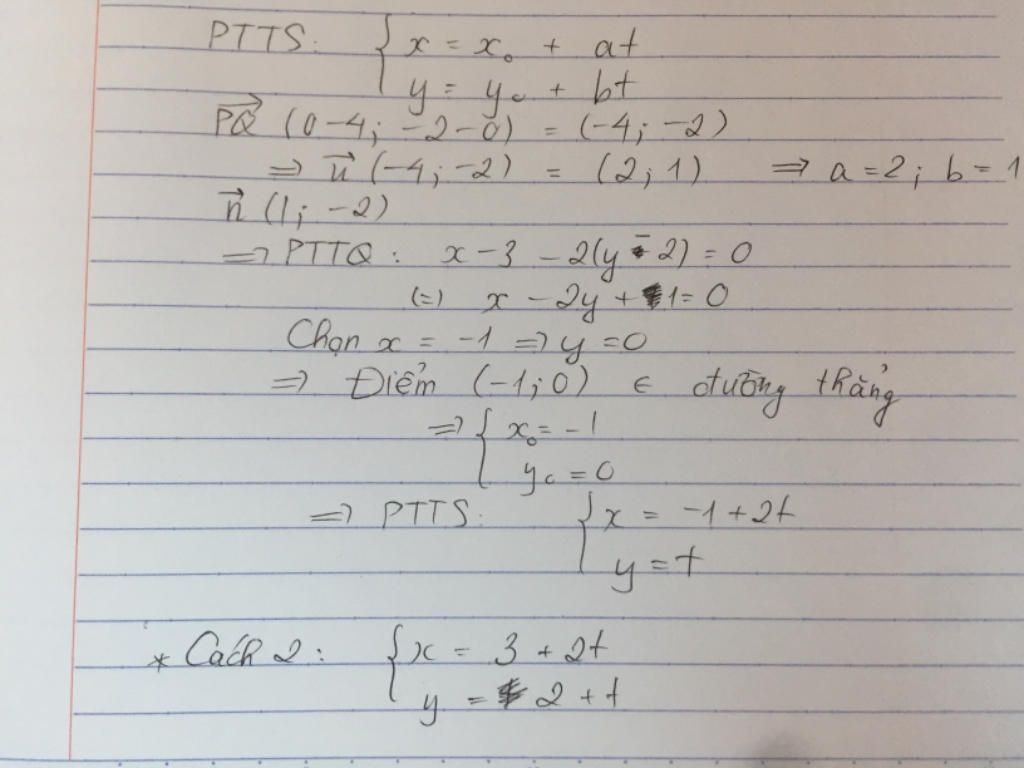 PTTS: { x = x₀ + at
y = y₀ + bt
PQ⃗ (0-4; -2-0) = (-4; -2)
=> u⃗ (-4; -2) = (2; 1) => a = 2; b = 1
n⃗ (1; -2)
=> PTTQ: x - 3 - 2(y - 2) = 0
(=) x - 2y + 1 = 0
Chọn x = -1 => y = 0
=> Điểm (-1; 0) ∈ đường thẳng
=> { x₀ = -1
y₀ = 0
=> PTTS: { x = -1 + 2t
y = t
* Cách 2: { x = 3 + 2t
y = 2 + t